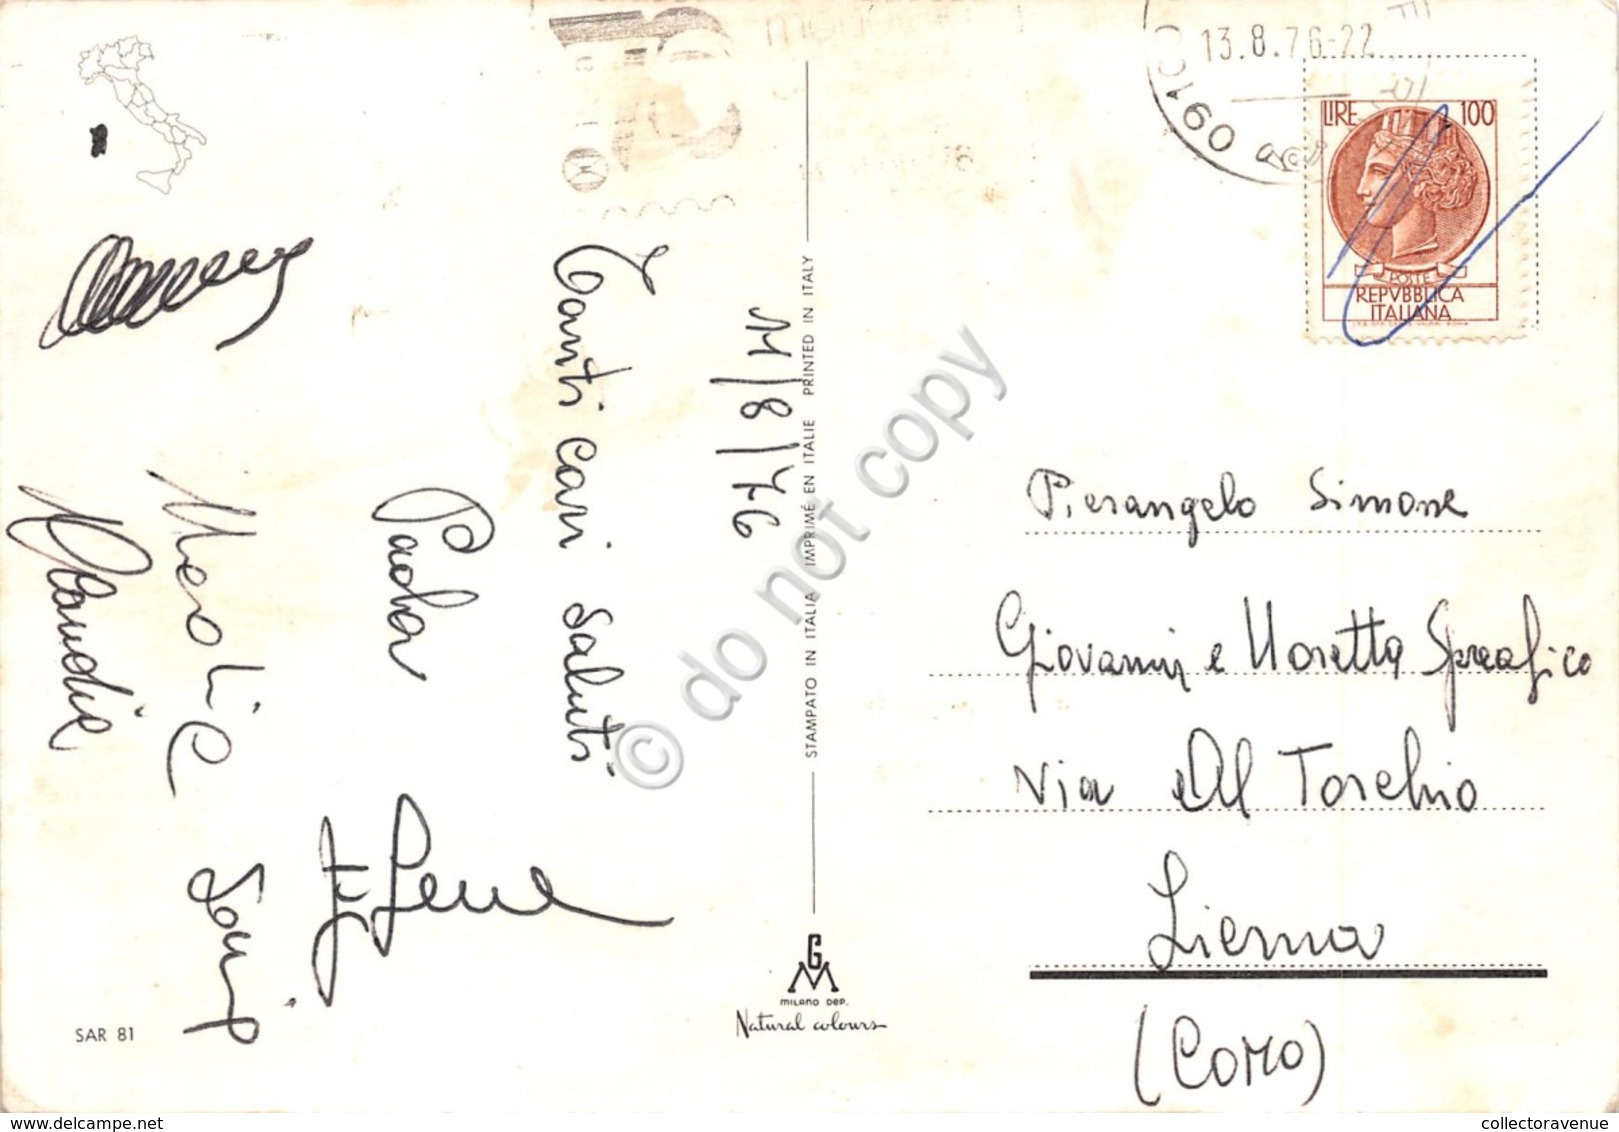 13.8.76-22
09100
LIRE 100
POSTE
REPVBBLICA
ITALIANA
11/8/76
Tanti cari saluti
Paola
Claudia
STAMPATO IN ITALIA IMPRIMÉ EN ITALIE PRINTED IN ITALY
Pierangelo Simone
Giovanni e Moretta Spreafico
Via Al Torchio
Lierna
(Como)
GM
MILANO DEP.
Natural colours
SAR 81
© do not copy
collectoravenue